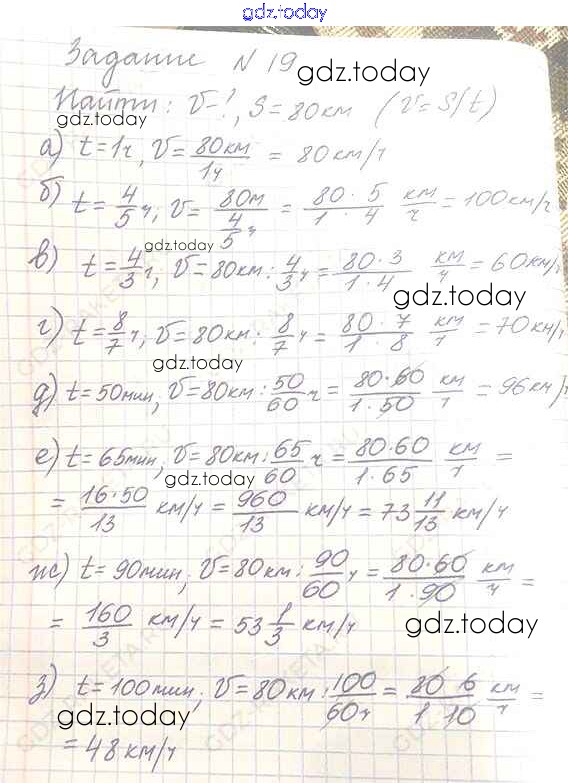 gdz.today
Задание N 19
gdz.today
Найти: V-?, S=80км (V=S/t)
gdz.today
а) t=1ч, V=80км/1ч = 80км/ч
б) t=4/5ч, V=80м/(4/5ч) = 80·5/1·4 км/ч = 100км/ч
gdz.today
в) t=4/3ч, V=80км:4/3ч = 80·3/1·4 км/ч = 60км/ч
gdz.today
г) t=8/7ч, V=80км:8/7ч = 80·7/1·8 км/ч = 70км/ч
gdz.today
д) t=50мин, V=80км:50/60ч = 80·60/1·50 км/ч = 96км/ч
е) t=65мин, V=80км:65/60ч = 80·60/1·65 км/ч =
gdz.today
= 16·50/13 км/ч = 960/13 км/ч = 73 11/13 км/ч
ж) t=90мин; V=80км:90/60ч = 80·60/1·90 км/ч =
= 160/3 км/ч = 53 1/3 км/ч
gdz.today
з) t=100мин; V=80км:100/60ч = 80 6/1 10 км/ч =
gdz.today
= 48км/ч